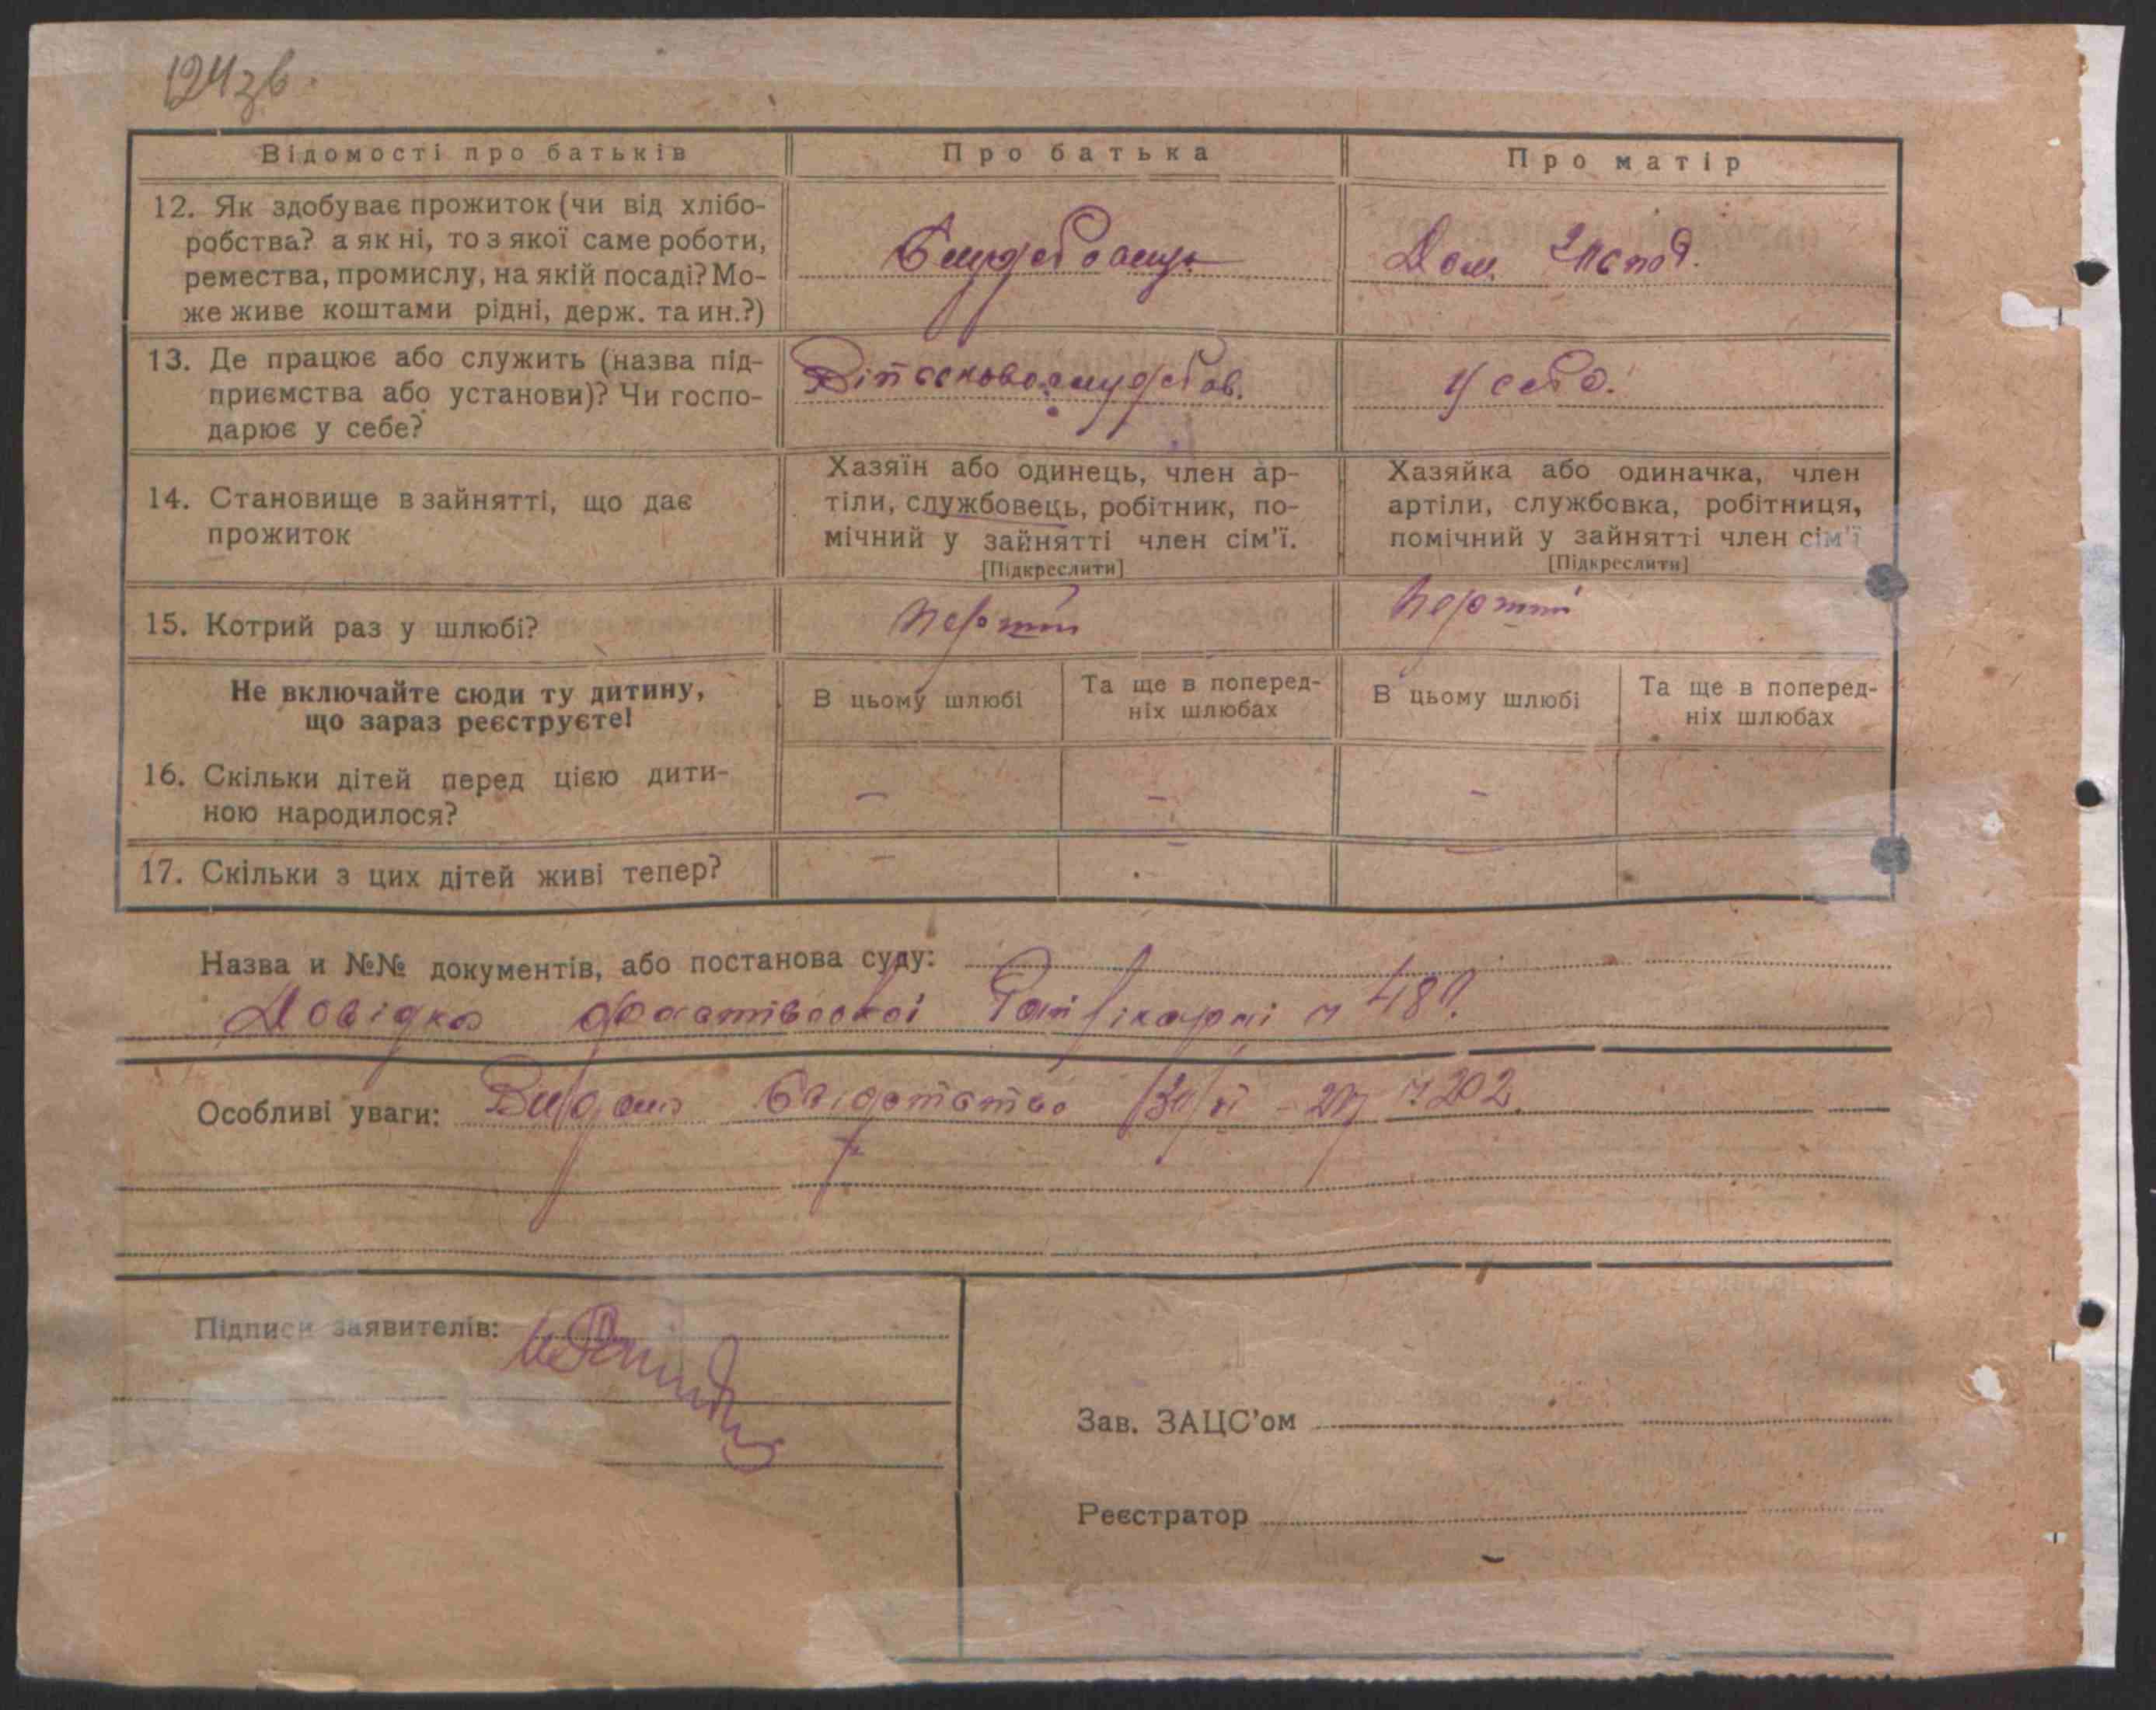 124 зв.
Відомості про батьків
Про батька
Про матір
12. Як здобуває прожиток (чи від хлібо-
робства? а як ні, то з якої саме роботи,
ремества, промислу, на якій посаді? Мо-
же живе коштами рідні, держ. та ин.?)
Службовець
Дом. Господ.
13. Де працює або служить (назва під-
приємства або установи)? Чи госпо-
дарює у себе?
Військовослужбов.
У себе.
14. Становище в зайнятті, що дає
прожиток
Хазяїн або одинець, член ар-
тіли, службовець, робітник, по-
мічний у зайнятті член сім'ї.
[Підкреслити]
Хазяйка або одиначка, член
артіли, службовка, робітниця,
помічний у зайнятті член сім'ї
[Підкреслити]
15. Котрий раз у шлюбі?
перший
перший
Не включайте сюди ту дитину,
що зараз реєструєте!
В цьому шлюбі
Та ще в поперед-
ніх шлюбах
В цьому шлюбі
Та ще в поперед-
ніх шлюбах
16. Скільки дітей перед цією дити-
ною народилося?
–
–
–
17. Скільки з цих дітей живі тепер?
–
–
–
Назва и №№ документів, або постанова суду:
Довідка Фастівської лікарні
Особливі уваги: Видано Свідотство № 202.
Підписи заявителів:
Зав. ЗАЦС'ом
Реєстратор